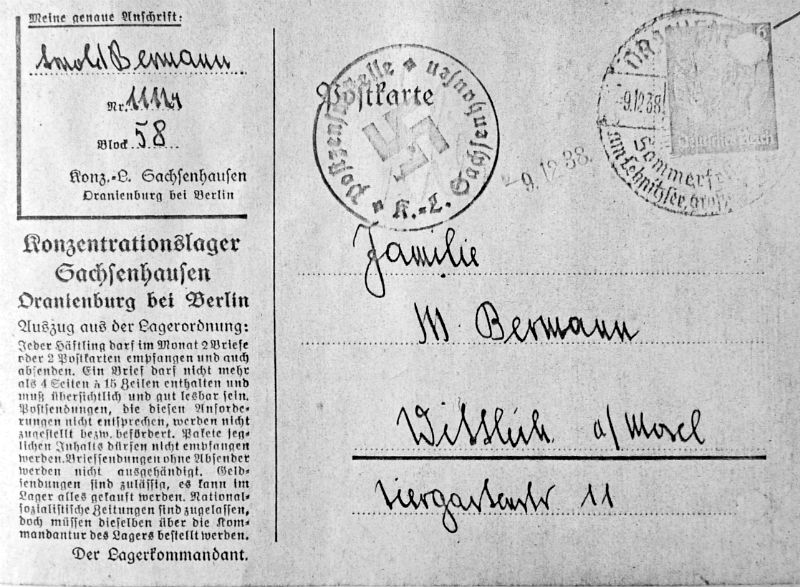 Meine genaue Anschrift:
Arnold Bermann
Nr. 11124
Block 58
Konz.-L. Sachsenhausen
Oranienburg bei Berlin
Konzentrationslager
Sachsenhausen
Oranienburg bei Berlin
Auszug aus der Lagerordnung:
Jeder Häftling darf im Monat 2 Briefe
oder 2 Postkarten empfangen und auch
absenden. Ein Brief darf nicht mehr
als 4 Seiten à 15 Zeilen enthalten und
muß übersichtlich und gut lesbar sein.
Postsendungen, die diesen Anforde-
rungen nicht entsprechen, werden nicht
zugestellt bezw. befördert. Pakete jeg-
lichen Inhalts dürfen nicht empfangen
werden. Briefsendungen ohne Absender
werden nicht ausgehändigt. Geld-
sendungen sind zulässig, es kann im
Lager alles gekauft werden. National-
sozialistische Zeitungen sind zugelassen,
doch müssen dieselben über die Kom-
mandantur des Lagers bestellt werden.
Der Lagerkommandant.
Postkarte
Postzensurstelle
K.-L. Sachsenhausen
-9.12.38.
-9.12.38
am Lehnitzsee
6
Deutsches Reich
Familie
M. Bermann
Wittlich a/Mosel
Tiergartenstr 11